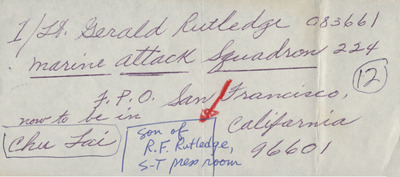 1/Lt. Gerald Rutledge 083661
marine attack Squadron 224
(12)
F.P.O. San Francisco,
California
96601
now to be in
Chu Lai
son of
R.F. Rutledge,
S-T press room